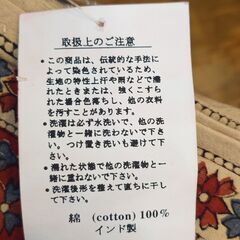 取扱上のご注意
●この商品は、伝統的な手法に
よって染色されているため、
生地の特性上汗や雨などで濡
れたときまたは、強くこすら
れた場合色落ちし、他の衣料
を汚すことがあります。
●洗濯は必ず水洗いで、他の洗
濯物と一緒に洗わないで下さ
い。つけ置き洗いも避けて下
さい。
●濡れた状態で他の洗濯物と
一緒に重ねないで下さい。
●洗濯後形を整えて直ちに干し
て下さい。
綿 (cotton) 100%
インド製